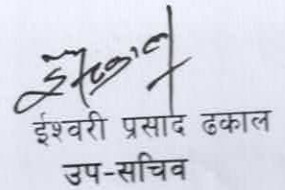 ईश्वरी प्रसाद ढकाल
उप-सचिव